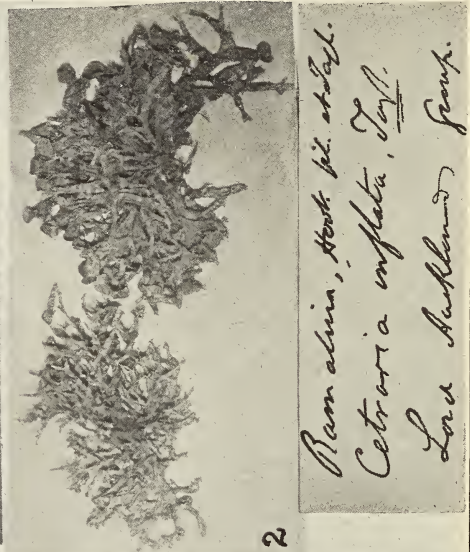 Ramalina, Hook fil. et Tayl.
Cetraria inflata, Tayl.
Lord Auckland, Group.
2